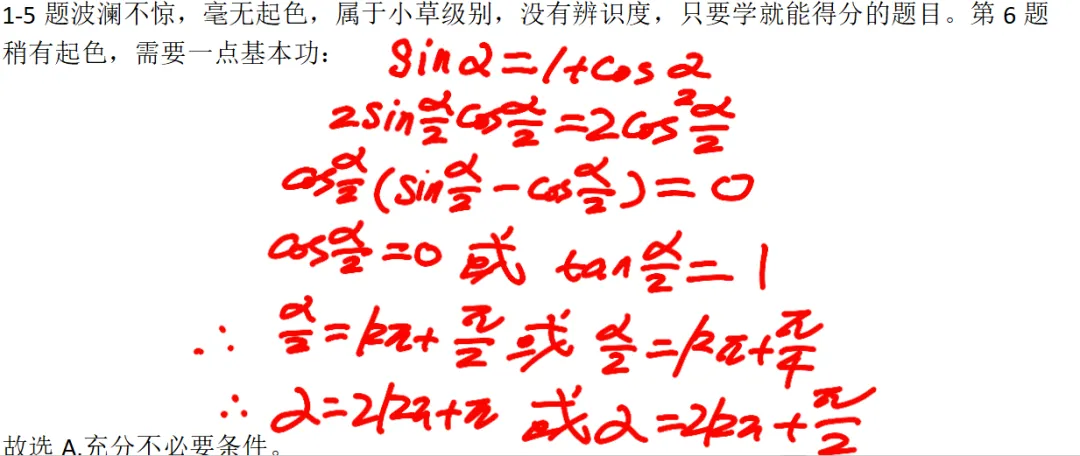 1-5 题波澜不惊，毫无起色，属于小草级别，没有辨识度，只要学就能得分的题目。第 6 题
稍有起色，需要一点基本功：
sinα=1+cosα
2sin α/2 cos α/2 = 2cos² α/2
cos α/2 (sin α/2 - cos α/2) = 0
cos α/2 = 0 或 tan α/2 = 1
∴ α/2 = kπ + π/2 或 α/2 = kπ + π/4
∴ α = 2kπ + π 或 α = 2kπ + π/2
故选 A.充分不必要条件。